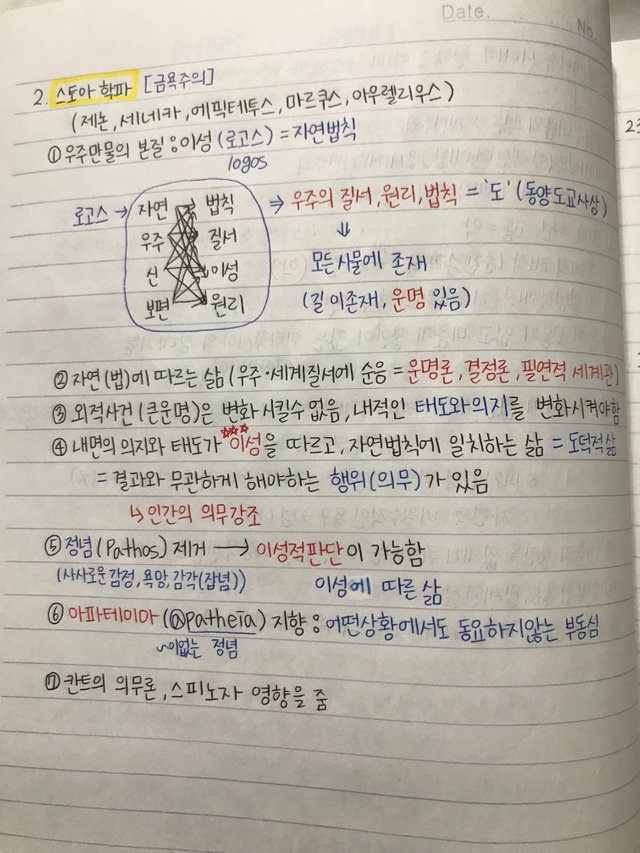 Date.
No.
2. 스토아 학파 [금욕주의]
(제논, 세네카, 에픽테투스, 마르쿠스, 아우렐리우스)
① 우주만물의 본질 : 이성 (로고스) = 자연법칙
logos
로고스 → 자연 법칙 ⇒ 우주의 질서, 원리, 법칙 = '도' (동양 도교사상)
우주 질서 ⇓
신 이성 모든 사물에 존재
보편 원리 (길이 존재, 운명 있음)
② 자연(법)에 따르는 삶 (우주·세계질서에 순응 = 운명론, 결정론, 필연적 세계관)
③ 외적사건 (큰운명)은 변화 시킬수 없음, 내적인 태도와 의지를 변화시켜야함
④ 내면의 의지와 태도가 이성을 따르고, 자연법칙에 일치하는 삶 = 도덕적삶
= 결과와 무관하게 해야하는 행위(의무)가 있음
↳ 인간의 의무강조
⑤ 정념 (Pathos) 제거 → 이성적판단이 가능함
(사사로운 감정, 욕망, 감각(잡념)) 이성에 따른 삶
⑥ 아파테이아 (apatheia) 지향 : 어떤상황에서도 동요하지않는 부동심
~이없는 정념
⑦ 칸트의 의무론, 스피노자 영향을 줌
23